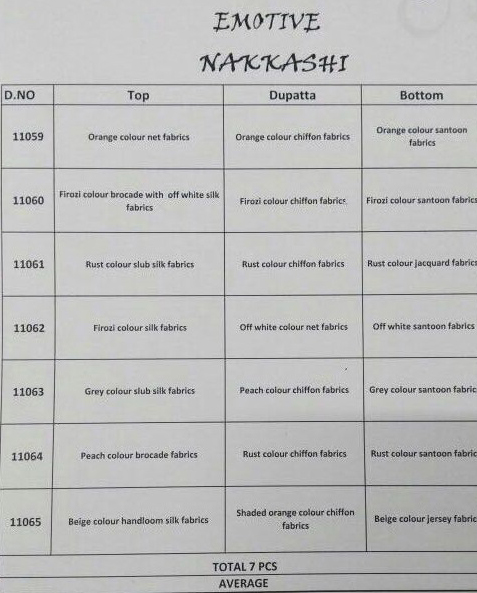 EMOTIVE
NAKKASHI
D.NO Top Dupatta Bottom
11059 Orange colour net fabrics Orange colour chiffon fabrics Orange colour santoon fabrics
11060 Firozi colour brocade with off white silk fabrics Firozi colour chiffon fabrics Firozi colour santoon fabrics
11061 Rust colour slub silk fabrics Rust colour chiffon fabrics Rust colour jacquard fabrics
11062 Firozi colour silk fabrics Off white colour net fabrics Off white santoon fabrics
11063 Grey colour slub silk fabrics Peach colour chiffon fabrics Grey colour santoon fabric
11064 Peach colour brocade fabrics Rust colour chiffon fabrics Rust colour santoon fabric
11065 Beige colour handloom silk fabrics Shaded orange colour chiffon fabrics Beige colour jersey fabric
TOTAL 7 PCS
AVERAGE